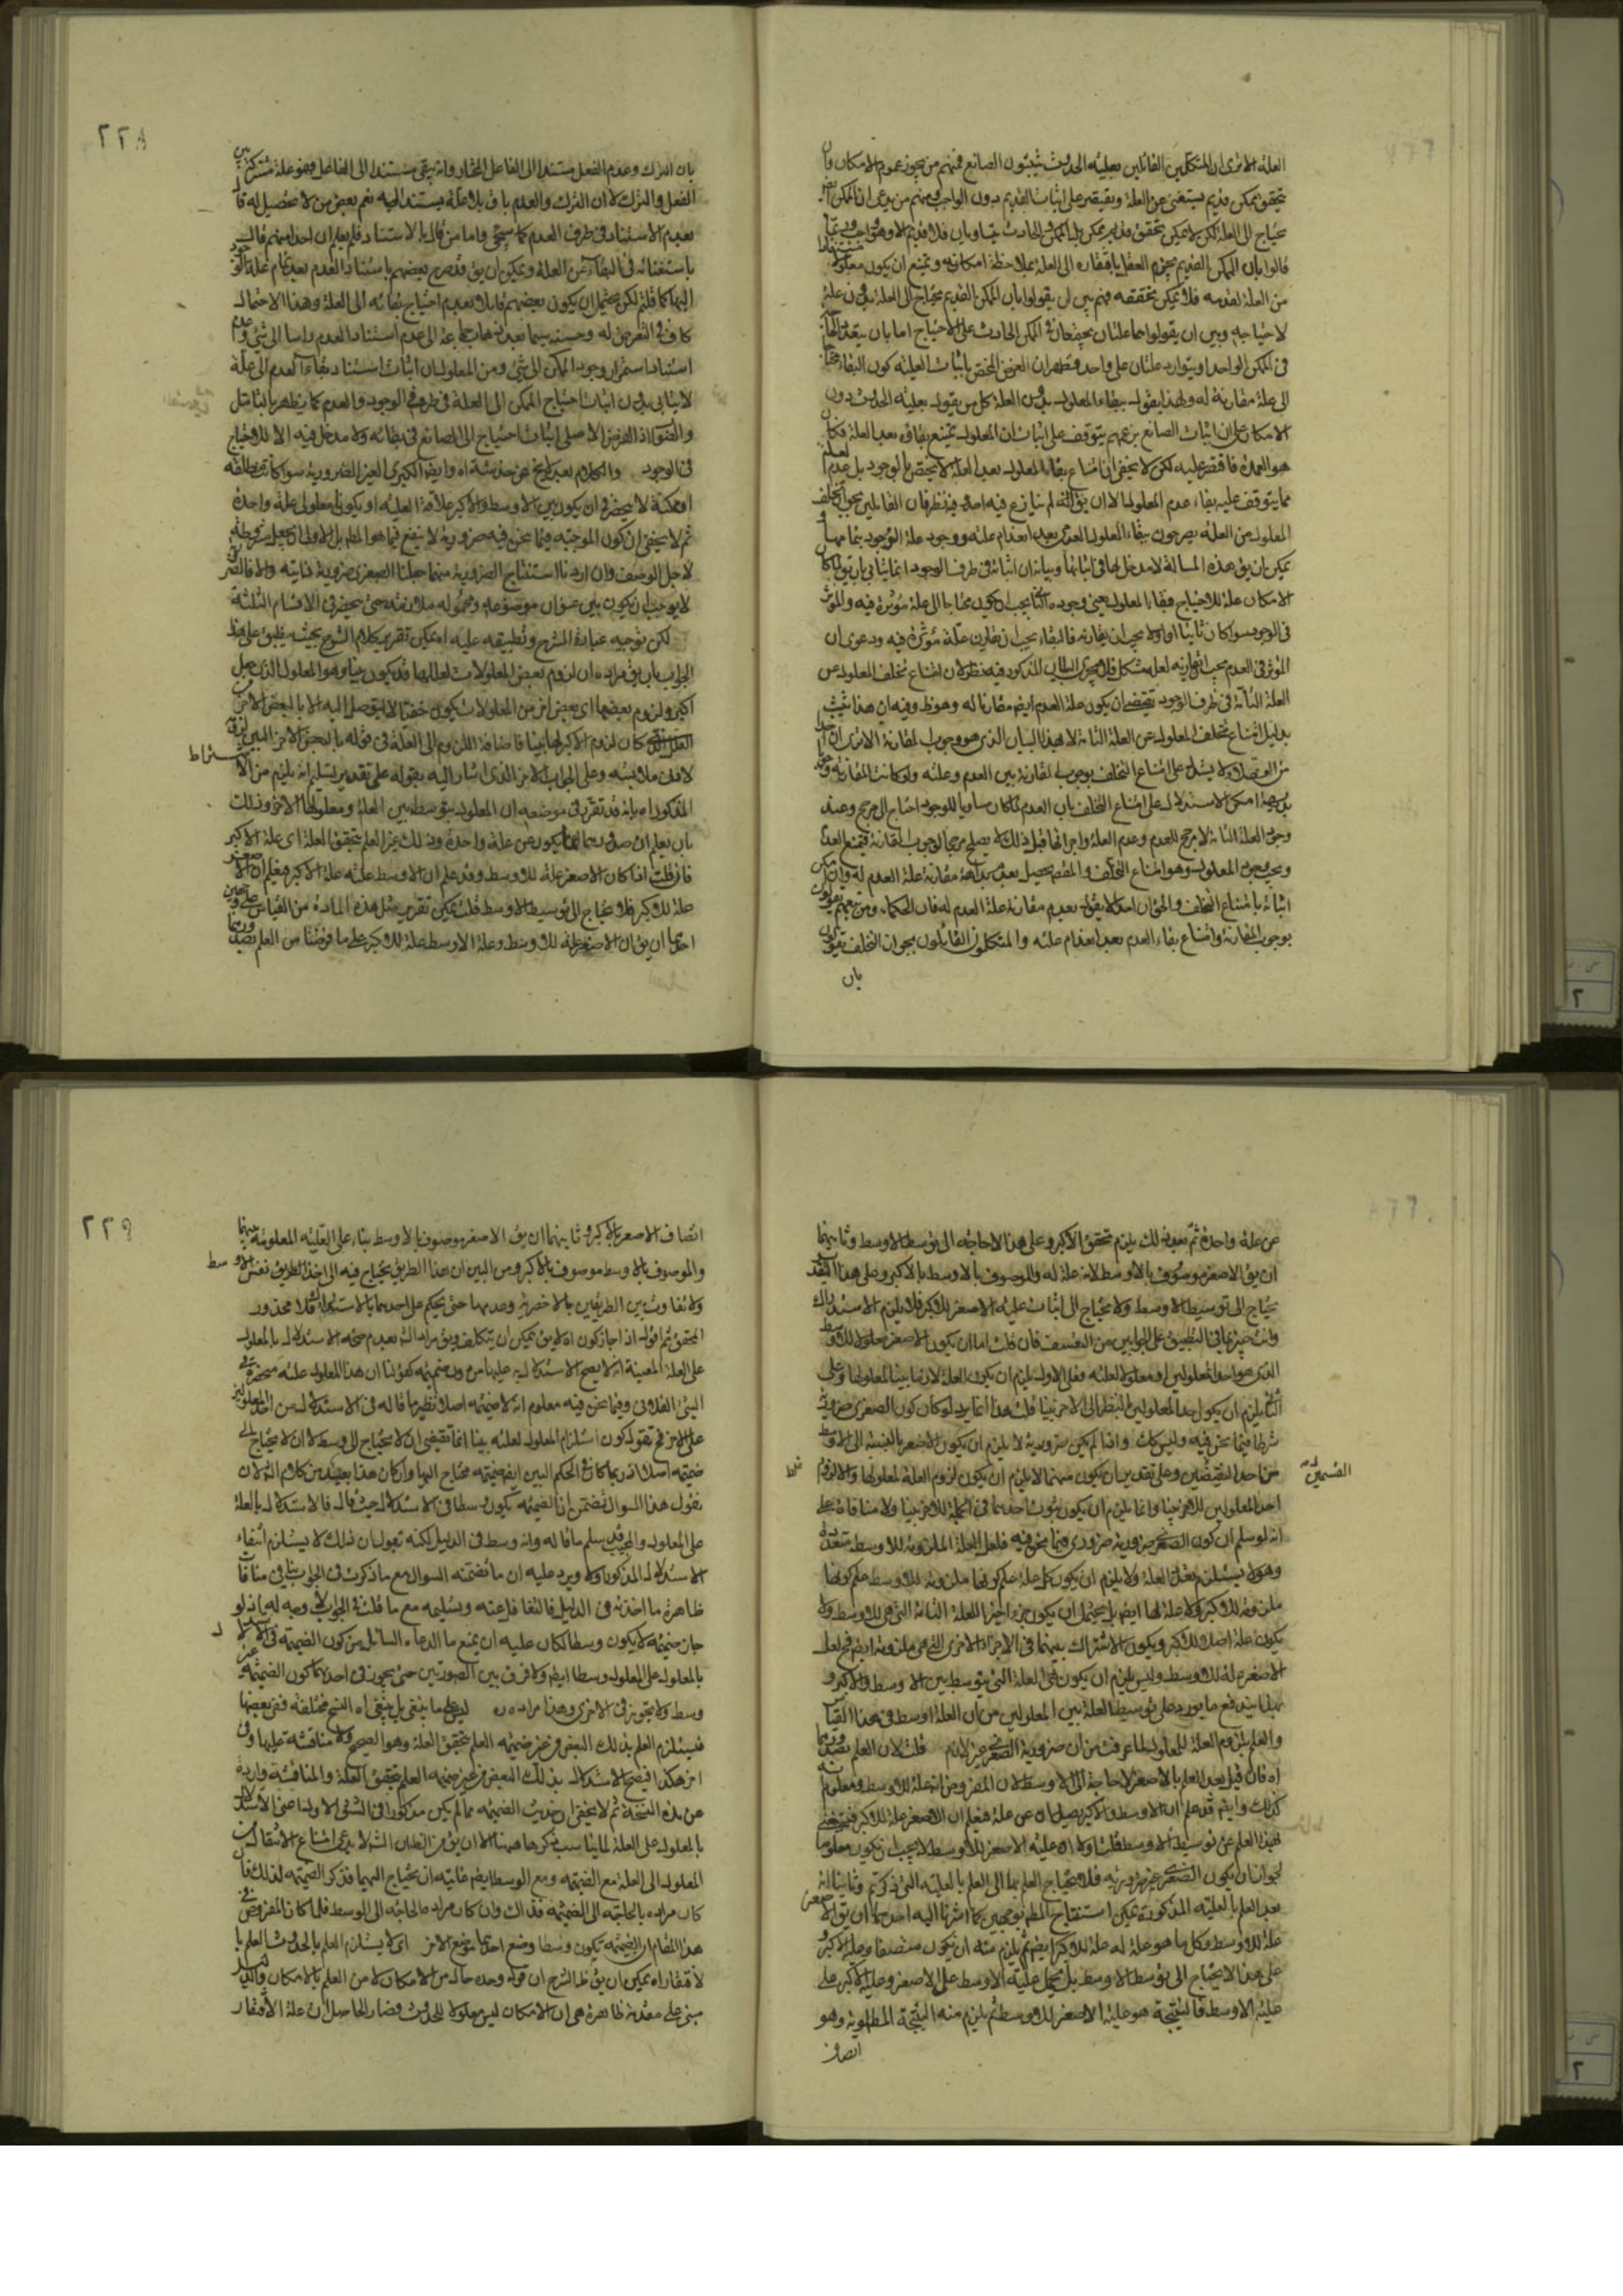 العلة الا ترى ان المتكلمين القائلين بعلية الحدوث يثبتون الصانع فمنهم من يجوز عموم الامكان وان
تحقق ممكن قديم يستغنى عن العلة ويقتصر على اثبات القديم دون الواجب ومنهم من يدعى ان الممكن
يحتاج الى العلة لكن لا يمكن تحقق قديم ممكن بل الممكن والحادث
قالوا بان الممكن القديم يجزم العقل بافتقاره الى العلة بملاحظة امكانه ويمتنع ان يكون معلولا
من العلة لقدمه فلا يمكن تحققه فهم بين ان يقولوا بان الممكن القديم يحتاج الى العلة بدون علة
لاحتياجه وبين ان يقولوا هما علتان يجتمعان في الممكن الحادث على الاحتياج اما بان
في الممكن الواحد او يتوارد علتان على واحد فظهر ان الغرض المختص باثبات العلية كون البقاء محتاجا
الى علة مقارنة له ولهذا يقول ببقاء المعلول بدون العلة كل من يقول بعلية الحدوث دون
الامكان على ان اثبات الصانع بزعمهم يتوقف على اثبات ان المعلول يمتنع بقاؤه بعد العلة فكان
هو العمدة فاقتصر عليه لكن لا يخفى ان امتناع بقاء المعلول بعد العلة لا يختص بالوجود بل عدم العلة
مما يتوقف عليه بقاء عدم المعلول الا ان يق انه لم ينازع فيه احد وفيه نظر فان القائلين بجواز تخلف
المعلول من العلة يصرحون ببقاء المعلول العدمي بعد انعدام علته ووجود علة الوجود بتمامها و
يمكن ان يق هذه المسالة لا مدخل لها في اثباتها وبيانه ان اثباته في طرف الوجود انما يتاتى بان يق لما كان
الامكان علة للاحتياج فبقاء المعلول يعنى وجوده الثاني يجب ان يكون محتاجا الى علة مؤثرة فيه والمؤثر
في الوجود سواء كان ثانيا او اولا يجب ان يقارنه فالبقاء يجب ان يقارن علة مؤثرة فيه ودعوى ان
المؤثر في العدم يجب ان يقارنه لعله مشكل فلا يجرى البيان المذكور فيه نظر لان امتناع تخلف المعلول عن
العلة التامة في طرف الوجود تقتضي ان يكون علة العدم ايضا مقارنا له وهو ظ وفيه ان هذا يثبت
بدليل امتناع تخلف المعلول عن العلة التامة لا بهذا البيان الذي هو وجوب المقارنة الا ترى ان
لا يستدل على امتناع التخلف بوجوب المقارنة بين العدم وعلته ولو كانت المقارنة
بديهية امكن الاستدلال على امتناع التخلف بان العدم لما كان مساويا للوجود احتاج الى مرجح وعند
وجود العلة التامة لا مرجح للعدم وعدم العلة واجزائها قبل ذلك لا يصلح مرجحا لوجوب المقارنة فيمتنع العدم
ويجب وجود المعلول وهو امتناع التخلف والمقصود يحصل بعد بداهة مقارنة علة العدم له وان امكن
اثباته بامتناع التخلف والحق ان احدا لا يقول بعدم مقارنة علة العدم له فان الحكماء ومن تبعهم يقولون
بوجوب المقارنة وامتناع بقاء العدم بعد انعدام علته والمتكلمون القائلون بجواز التخلف يقولون
بان
٢٢٨
بان الترك وعدم الفعل مستند الى الفاعل المختار وانه يبقى مستندا الى الفاعل فهو علة مشتركة بين
الفعل والترك لا ان الترك والعدم باق بلا علة يستند اليه نعم بعض من لا تحصيل له قال
بعدم الاستناد في طرف العدم كما سيجئ واما من قال بالاستناد فلم يعلم ان احدا منهم قال
باستغنائه في البقاء عن العلة ويمكن ان يق قد صرح بعضهم باستناد العدم بعدم تمام علة الوجود
اليها كما قلتم لكن يحتمل ان يكون بعضهم قايلا بعدم احتياج بقائه الى العلة وهذا الاحتمال
كاف في التعرض له وحسنه سيما بعد ذهاب جماعة الى عدم استناد العدم راسا الى شئ وعدم
استناد استمرار وجود الممكن الى شئ ومن المعلول ان اثبات استناد بقاء العدم الى علة
لا يتاتى بدون اثبات احتياج الممكن الى العلة في طرفي الوجود والعدم كما يظهر بالتامل
اذ الغرض الاصلي اثبات احتياج الى الصانع في بقائه ولا مدخل فيه الا للاحتياج
في الوجود
او ممكنة لا ينحصر في ان يكون بين الاوسط والاكبر علاقة العلية او يكونا معلولى علة واحدة
ثم لا يخفى ان كون الموجبة فيما نحن فيه ضرورية لا ينفع فيما هو المطلوب
لاجل الوصف وان اردنا استنتاج الضرورية منهما جعلنا الصغرى ضرورية ذاتية
لا يوجب ان يكون بين عنوان موضوعه ومحموله ملازمة حتى ينحصر في الاقسام الثلثة
لكن توجيه عبارة الشرح وتطبيقه عليه انه يمكن تقرير كلام الشرح بحيث ينطبق على هذا
الجواب بان يق مراده ان لزوم بعض المعلولات لعللها قد يكون بينا وهو المعلول الذي جعل
اكبر ولزوم بعضها اى بعض اخر من المعلولات يكون خفيا لا يتوصل اليه الا بالبعض الاخر
كان لزوم الاكبر لها بينا فاضافة اللزوم الى العلة في قوله بالبعض الاخر البين لزوم
لادنى ملابسة وعلى الجواب الاخر الذي اشار اليه بقوله على تقدير تسليم انه يلزم من
اشتراط
المذكور اه بانه قد تقرر في موضعه ان المعلول يتوسط بين العلة ومعلولها الاخر وذلك
بان يعلم ان صدورهما انما يكون عن علة واحدة وذلك بعد العلم بتحقق العلة اى علة الاكبر
فان قلت اذا كان الاصغر علة للاوسط وقد علم ان الاوسط علته علة الاكبر فيعلم ان الاصغر
علة للاكبر فلا يحتاج الى توسيط الاوسط قلت يمكن تقرير مثل هذه المادة من القياس على وجهين
احدهما ان يق ان الاصغر علة للاوسط وعلة الاوسط علة للاكبر على ما فرضنا من العلم بصدورهما
عن علة واحدة ثم بعد ذلك يلزم تحقق الاكبر وعلى هذا لا حاجة الى توسط الاوسط وثانيهما
ان يق الاصغر موصوف بالاوسط لانه علة له والموصوف بالاوسط موصوف بالاكبر وعلى هذا التقدير
يحتاج الى توسيط الاوسط ولا يحتاج الى اثبات علية الاصغر للاكبر فلا يلزم الاستدراك
وانت خبير بما في التطبيق على الجوابين من التعسف فان قلت اما ان يكون الاصغر معلولا للاوسط
الذي هو احد المعلولين او معلولا لعلته وعلى الاول يلزم ان يكون العلة لازما بينا لمعلولها وعلى
الثاني يلزم ان يكون احد المعلولين بالنظر الى الاخر بينا قلت هذا انما يرد لو كان كون الصغرى ضرورية
شرطا فيما نحن فيه وليس كك واذا لم يكن ضرورية لا يلزم ان يكون الاصغر بالنسبة الى الاوسط
من احد القسمين وعلى تقدير ان يكون منهما لا يلزم ان يكون لزوم العلة لمعلولها ولا لزوم
القسمين
احد المعلولين للاخر بينا وانما يلزم ان يكون ثبوت احدهما في الجملة للاخر بينا ولا منافاة على
انه لو سلم ان كون الصغرى ضرورية ضروري فيما نحن فيه فلعل العلة الملزومة للاوسط متعددة
وهو لا يستلزم تعدد العلة ولا يلزم ان يكون كل علة علم كونها ملزومة للاوسط علم كونها
ملزومة للاكبر ولا علة لها ايضا بل يحتمل ان يكون جزء اخيرا للعلة التامة التي هي للاوسط ولا
يكون علة اصلا للاكبر ويكون الاشتراك بينهما في الاجزاء الاخرى التي هي ملزومة ايضا فح لعل
الاصغر علة للاوسط وليس يلزم ان يكون هي العلة التي يتوسط بين الاوسط والاكبر و
بهذا يندفع ما يورد على توسيط العلة بين المعلولين من ان العلة اوسط في هذا القياس
والعلم بلزوم العلة للمعلول لما عرفت من ان ضرورية الصغرى غير لازم قلت لان العلم بصدورهما
اه فان قيل بعد العلم بالاصغر لا حاجة الى الاوسط لان المفروض انه علة للاوسط ومعلوم
كذلك وايضا قد علم ان الاوسط والاكبر يصدران عن علة فيعلم ان الاصغر علة للاكبر فيستغنى
بهذا العلم عن توسيط الاوسط قلت اولا ان علية الاصغر للاوسط لا يجب ان يكون معلوما
لجواز ان يكون الصغرى غير ضرورية فلا يحتاج العلم بها الى العلم بالعلية التي ذكرتم وثانيا انه
بعد العلم بالعلية المذكورة يمكن استنتاج المطلوب بوجهين كما اشرنا اليه احدهما ان يق الاصغر
علة للاوسط وكل ما هو علة له علة للاكبر ايضا ثم يلزم منه ان يكون متصفا وعلة للاكبر و
على هذا لا يحتاج الى توسط الاوسط بل يحمل علية الاوسط على الاصغر وعلية الاكبر على
علية الاوسط فالنتيجة هو علية الاصغر للاوسط ثم يلزم منه النتيجة المطلوبة وهو
اتصاف
٢٢٩
اتصاف الاصغر بالاكبر وثانيهما ان يق الاصغر موصوف بالاوسط بناء على العلية المعلومة بينهما
والموصوف بالاوسط موصوف بالاكبر ومن البين ان هذا الطريق يحتاج فيه الى اخذ الطريق نفس الاوسط
ولا تفاوت بين الطريقين بالاخصرية وعدمها حتى يحكم على احدهما بالاستدراك فلا محذور
المحقق ثم اقول اذا جاز كون اه لا يق يمكن ان يتكلف ويق مراده بعدم صحة الاستدلال بالمعلول
على العلة المعينة انه لا يصح الاستدلال به عليها من دون ضميمة كقولنا ان هذا المعلول علته منحصرة في
الشئ الفلاني وفيما نحن فيه معلوم انه لا ضميمة اصلا نظير ما قاله في الاستدلال من احد المعلولين
على الاخر فح نقول كون استلزام المعلول لعلته بينا انما تقتضي ان لا يحتاج الى وسط لا ان لا يحتاج الى
ضميمة اصلا اذ ربما كان في الحكم البين ايضا ضميمة محتاج اليها وان كان هذا بعيدا من كلام الشارح لانا
نقول هذا السوال يتضمن ان الضميمة يكون وسطا في الاستدلال حيث قال فالاستدلال بالعلة
على المعلول والمجيب قد سلم ما قاله وانه وسط في الدليل لكنه يقول ان ذلك لا يستلزم انتفاء
الاستدلال المذكور اولا ويرد عليه ان ما تضمنه السوال مع ما ذكرت في الجواب يتنافى منافاة
ظاهرة ما اخذته في الدليل فالتفافل عنه وتسليمه مع ما قلت في الجواب لا وجه له اذ لو
جاز ضميمة لا يكون وسطا لكان عليه ان يمنع ما ادعاه السائل من كون الضميمة في الاستدلال
بالمعلول على المعلول وسطا ايضا ولا فرق بين الصورتين حتى يجوز في احدهما كون الضميمة غير
وسط ولا يجوز في الاخرى وهذا مراده ره اه النسخ مختلفة ففي بعضها
فيستلزم العلم بذلك البعض من غير ضميمة العلم بتحقق العلة وهو الصحيح ولا مناقشة عليها وفي
اخر هكذا فيصح الاستدلال بذلك البعض من غير ضميمة العلم بتحقق العلة والمناقشة واردة
على هذه النسخة ثم لا يخفى ان حديث الضميمة مما لم يكن مذكورا في الشق الاول اعنى الاستدلال
بالمعلول على العلة
المعلول الى العلة مع الضميمة ومع الوسط ايضا غايته ان يحتاج اليهما فذكر الضميمة لذلك فان
كان مراده بالحاجة الى الضميمة فذاك وان كان مراده الحاجة الى الوسط فلما كان المفروض في
هذا المقام ان الضميمة تكون وسطا وضع احدهما موضع الاخر اى لا يستلزم العلم بالحدوث العلم بالافتقار
اه يمكن ان يق ظ الشرح ان قوله وحده حال من الامكان لا من العلم بالامكان والدليل
مبنى على مقدمة ظاهرة هي ان الامكان ليس معلولا للحدوث فصار الحاصل ان علة الافتقار